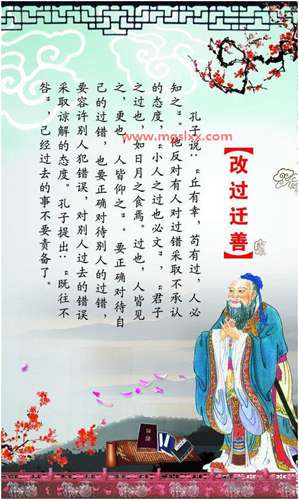 【改过迁善】
孔子说："丘有幸，苟有过，人必
知之"。他反对有人对过错采取不承认
的态度，"小人之过也必文"，"君子
之过也，如日月之食焉。过也，人皆见
之，更也，人皆仰之"。要正确对待自
己的过错，也要正确对待别人的过错，
要容许别人犯错误，对别人过去的错误
采取谅解的态度。孔子提出："既往不
咎"，已经过去的事不要责备了。
www.mgslxx.com